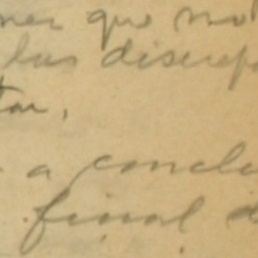 ner que no
las discrep
tar,
a conclu
final d